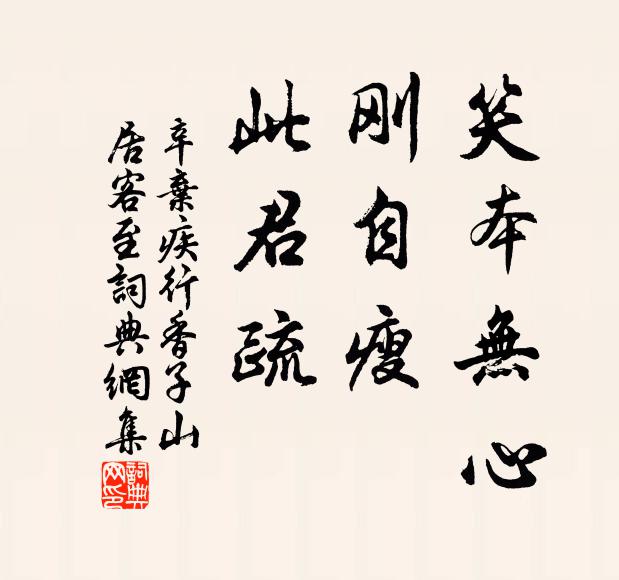 笑本無心
刚自瘦
此君疏
辛棄疾行香子山
居客至詞典網集
詞典网印